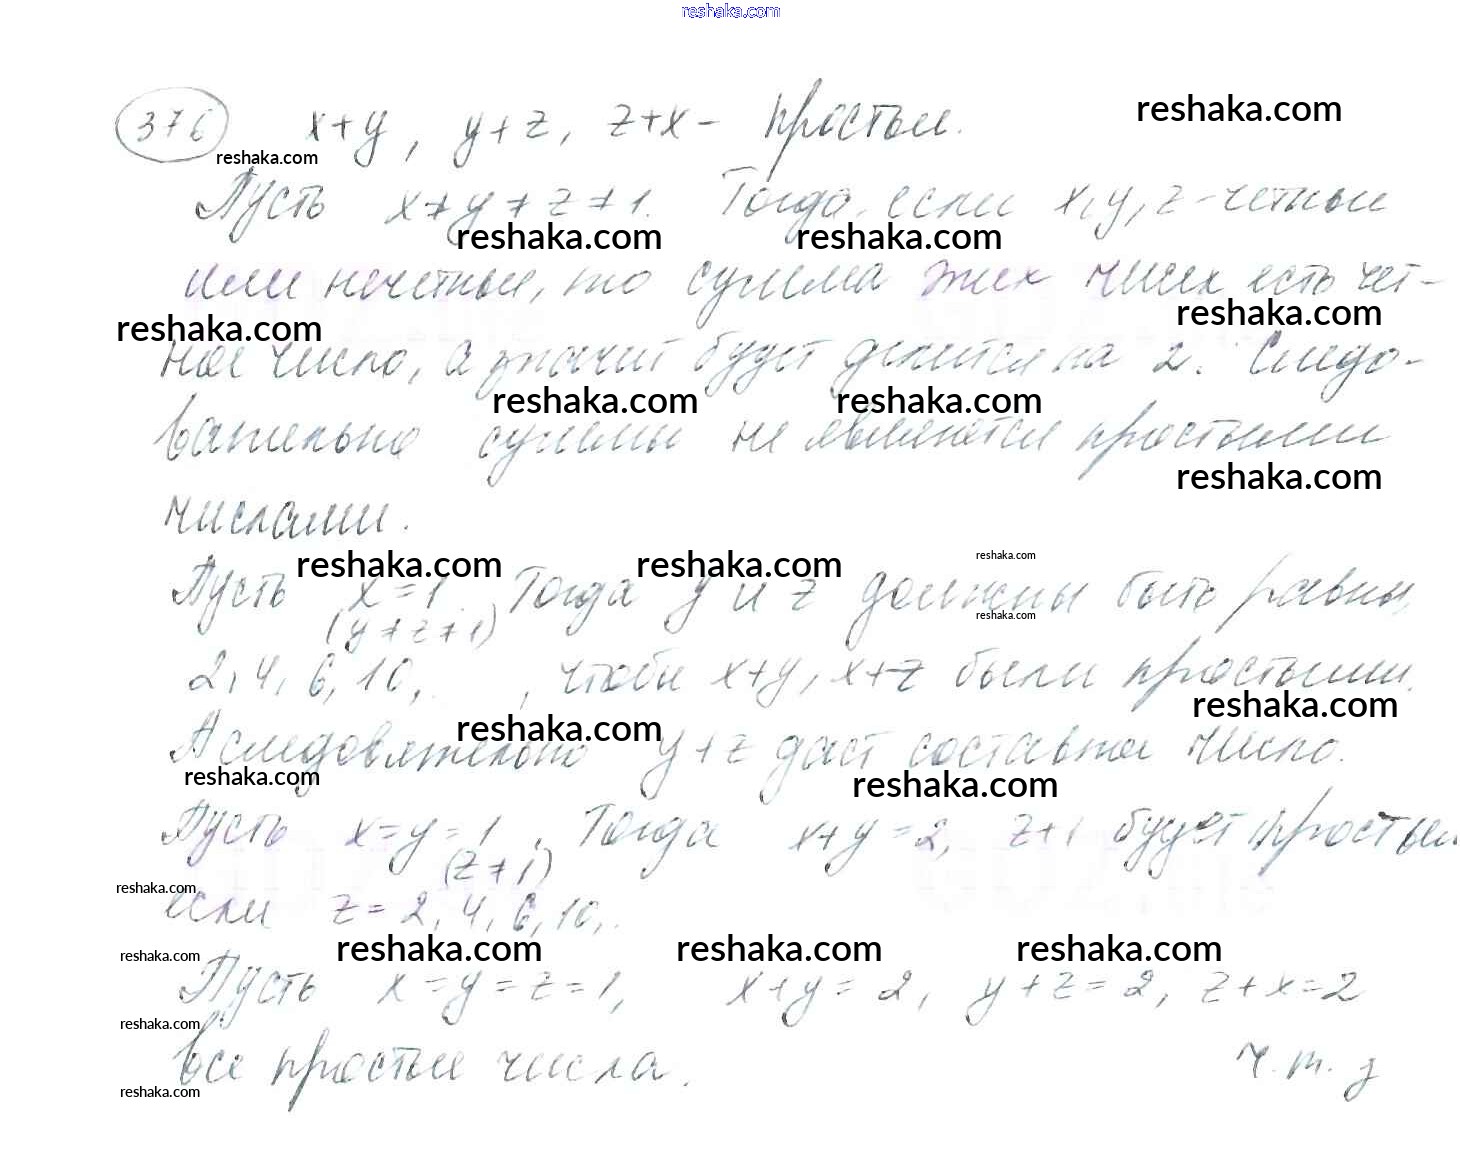 reshaka.com
376 x+y, y+z, z+x - простые.
reshaka.com
reshaka.com
Пусть x ≠ y ≠ z ≠ 1. Тогда, если x, y, z - четные
reshaka.com reshaka.com
или нечетные, то сумма этих чисел есть чет-
reshaka.com
reshaka.com
ное число, а значит будет делится на 2. Следо-
reshaka.com reshaka.com
вательно суммы не являются простыми
reshaka.com
числами.
reshaka.com reshaka.com reshaka.com
Пусть x = 1. Тогда y и z должны быть равны,
reshaka.com
(y ≠ z ≠ 1)
2, 4, 6, 10, , чтобы x+y, x+z были простыми.
reshaka.com
reshaka.com
А следовательно y+z даст составное число.
reshaka.com
reshaka.com
Пусть x = y = 1, Тогда x+y = 2, z+1 будет простым
(z ≠ 1)
reshaka.com
если z = 2, 4, 6, 10,..
reshaka.com reshaka.com reshaka.com
reshaka.com
Пусть x = y = z = 1, x+y = 2, y+z = 2, z+x = 2
reshaka.com
все простые числа. ч.т.д
reshaka.com